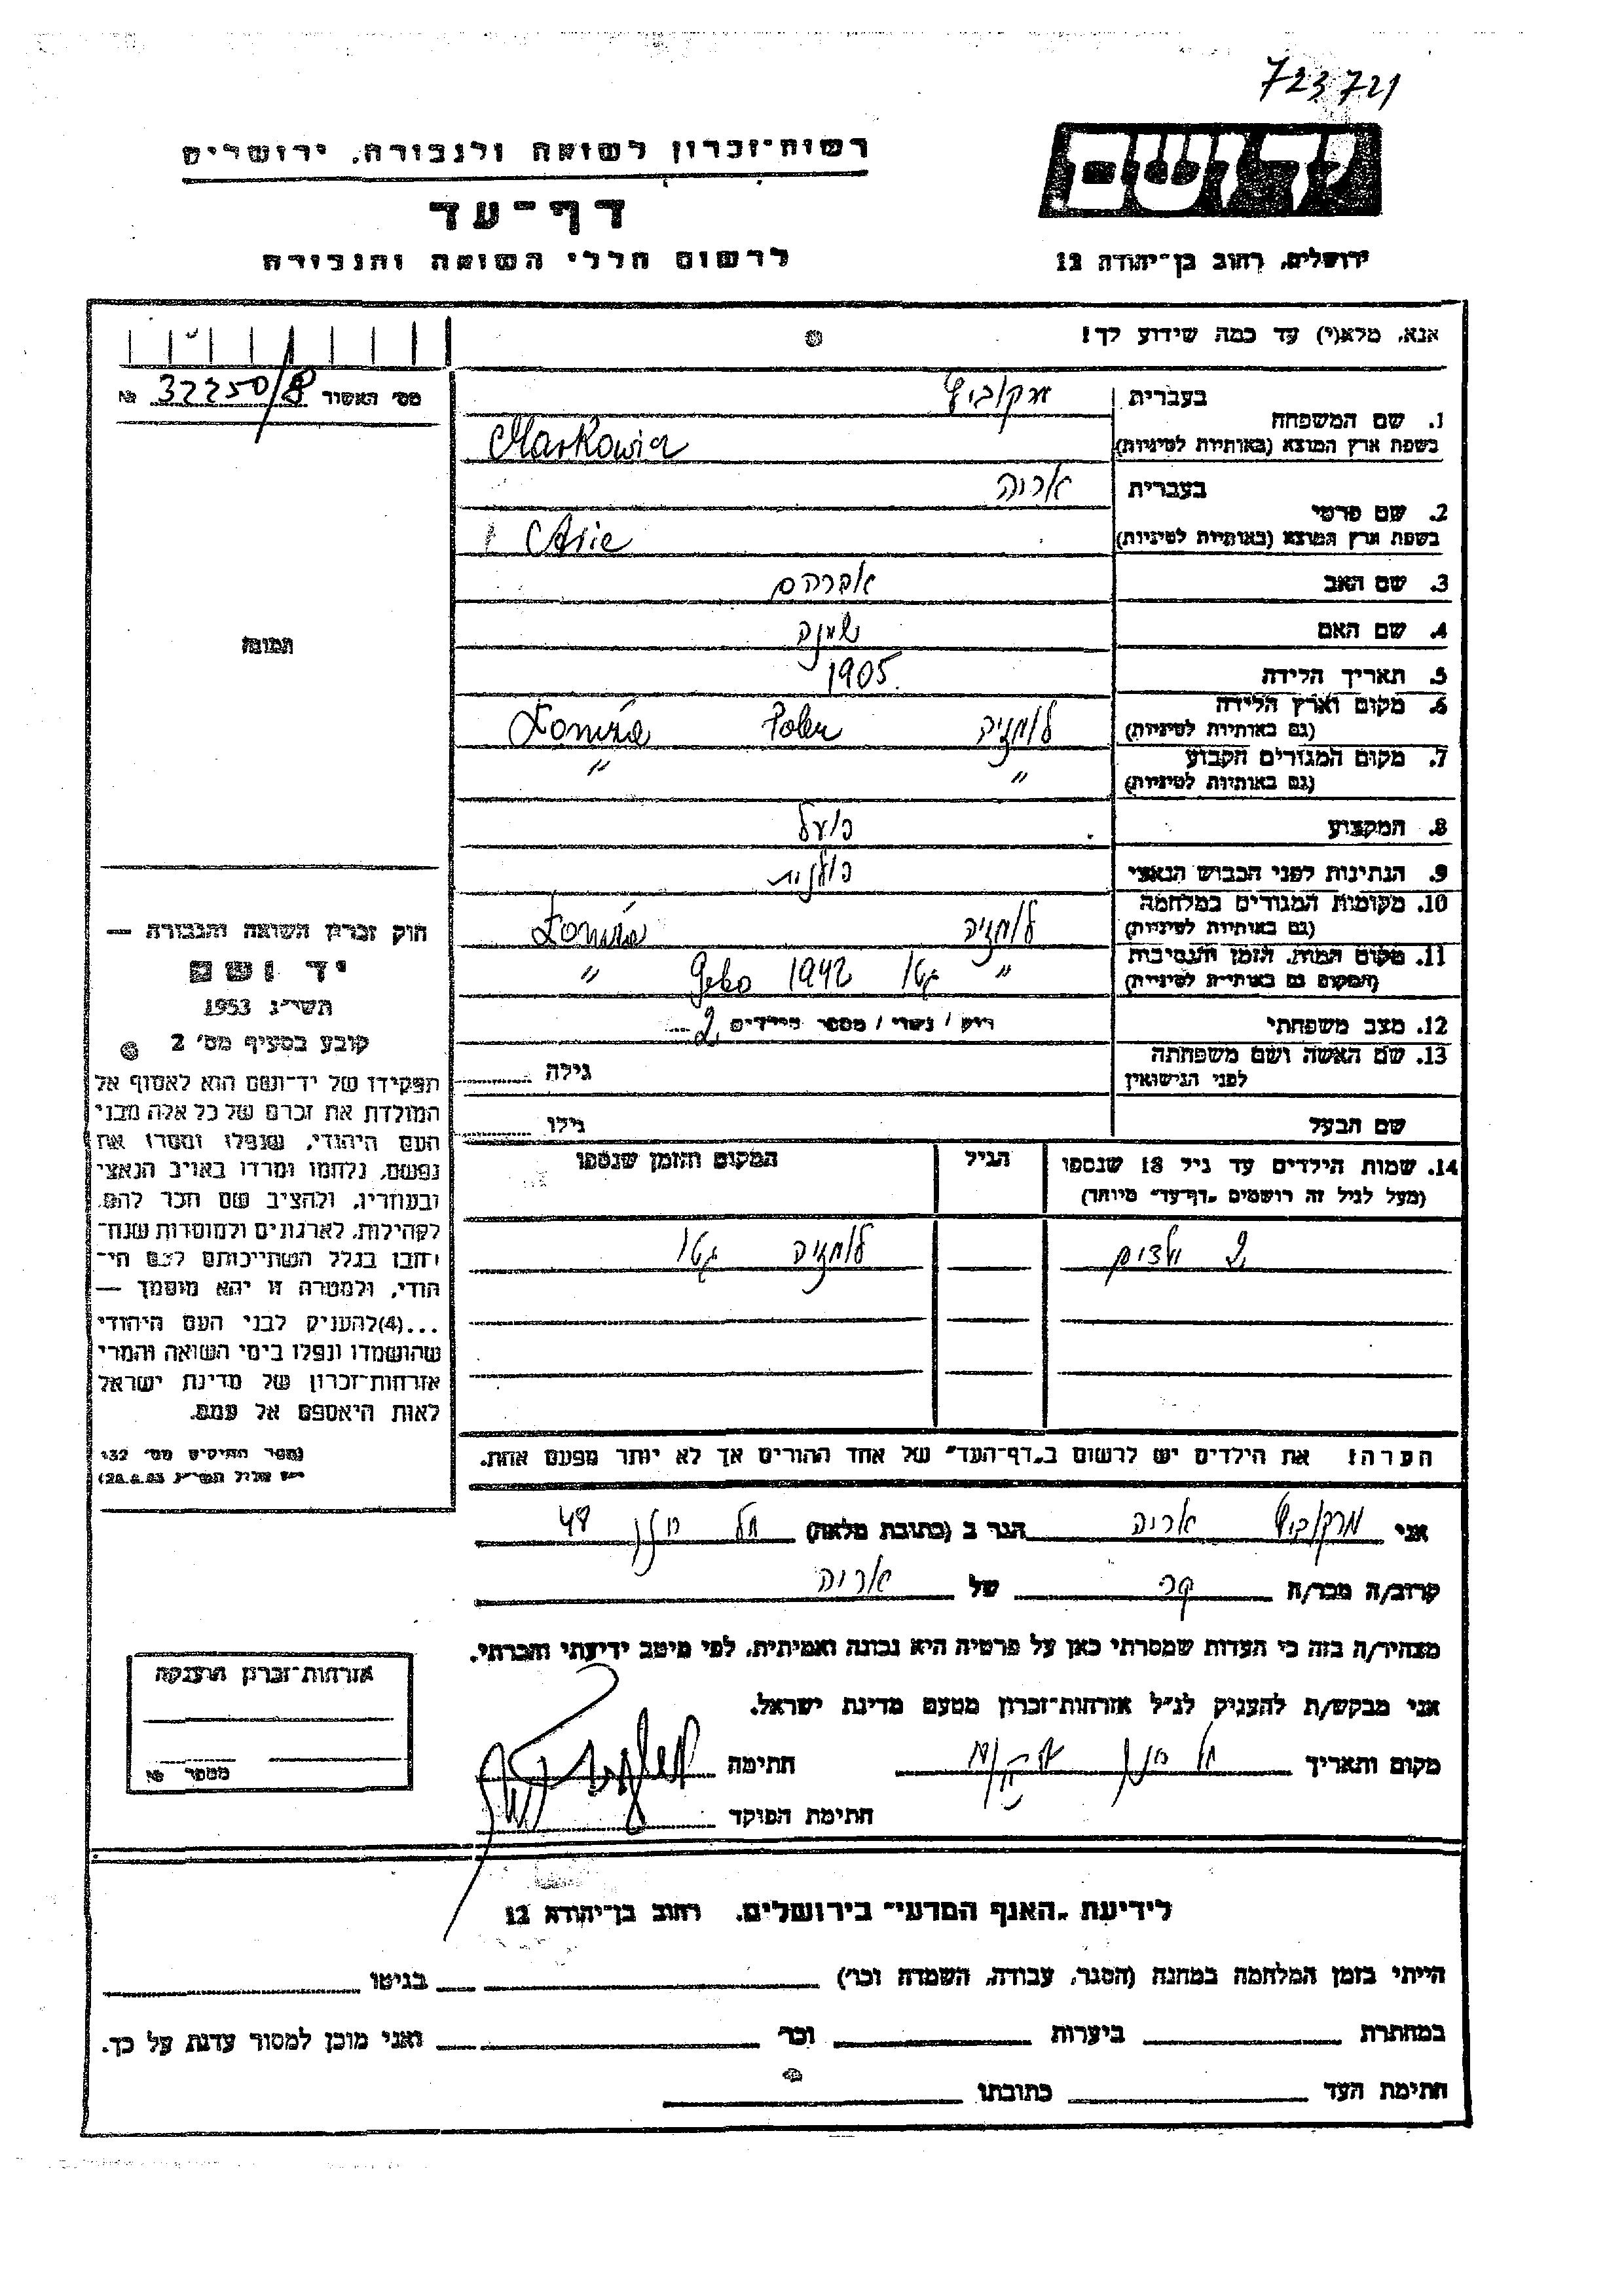 723721
יד ושם
רשות־זכרון לשואה ולגבורה, ירושלים
דף־עד
לרשום חללי השואה והגבורה
ירושלים, רחוב בן־יהודה 12
אנא, מלא(י) עד כמה שידוע לך!
מס׳ האשור 32250/8 №
1. שם המשפחה
בעברית מרקוביץ
בשפת ארץ המוצא (באותיות לטיניות)
2. שם פרטי
בעברית אריה
בשפת ארץ המוצא (באותיות לטיניות) Arie
3. שם האב אברהם
4. שם האם
5. תאריך הלידה 1905
6. מקום וארץ הלידה
(גם באותיות לטיניות) לומזה Łomża
7. מקום המגורים הקבוע
(גם באותיות לטיניות) " "
8. המקצוע פועל
9. הנתינות לפני הכבוש הנאצי פולנית
10. מקומות המגורים במלחמה
(גם באותיות לטיניות) לומזה Łomża
11. מקום המות, הזמן והנסיבות
(המקום גם באותיות לטיניות) " גטו 1942 "
12. מצב משפחתי רוק / נשוי / מספר הילדים 2
13. שם האשה ושם משפחתה
לפני הנישואין גילה
שם הבעל גילו
14. שמות הילדים עד גיל 18 שנספו
(מעל לגיל זה רושמים „דף־עד״ מיוחד)
הגיל
המקום והזמן שנספו
2 ילדים לומזה גטו
הערה: את הילדים יש לרשום ב„דף־העד״ של אחד ההורים אך לא יותר מפעם אחת.
תמונה
חוק זכרון השואה והגבורה —
יד ושם
תשי״ג 1953
קובע בסעיף מס׳ 2
תפקידו של יד־ושם הוא לאסוף אל
המולדת את זכרם של כל אלה מבני
העם היהודי, שנפלו ומסרו את
נפשם, נלחמו ומרדו באויב הנאצי
ובעוזריו, ולהציב שם וזכר להם,
לקהילות, לארגונים ולמוסדות שנח־
רבו בגלל השתייכותם לעם הי־
הודי, ולמטרה זו יהא מוסמך —
...(4)להעניק לבני העם היהודי
שהושמדו ונפלו בימי השואה והמרי
אזרחות־זכרון של מדינת ישראל
לאות היאספם אל עמם.
(ספר החוקים מס׳ 132
אני מרקוביץ אריה הגר ב (כתובת מלאה) תל 48
קרוב/ה מכר/ה של אריה
מצהיר/ה בזה כי העדות שמסרתי כאן על פרטיה היא נכונה ואמיתית, לפי מיטב ידיעתי והכרתי.
אני מבקש/ת להעניק לנ״ל אזרחות־זכרון מטעם מדינת ישראל.
מקום ותאריך חתימה
חתימת הפוקד
אזרחות־זכרון הוענקה
מספר №
לידיעת „האגף המדעי״ בירושלים, רחוב בן־יהודה 12
הייתי בזמן המלחמה במחנה (הסגר, עבודה, השמדה וכו׳) בגיטו
במחתרת ביערות וכו׳ ואני מוכן למסור עדות על כך.
חתימת העד כתובתו